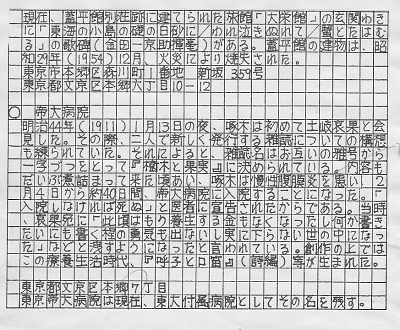 現在、蓋平館別荘跡に建てられた旅館「大栄館」の玄関わき
に「東海の小島の磯の白砂に/われ泣きぬれて/蟹とたはむ
る」の歌碑(金田一京助揮毫)がある。蓋平館の建物は、昭
和29年(1954)12月、火災により焼失された。
東京市本郷区森川町1番地 新坂 359号
東京都文京区本郷六丁目10-12
○ 帝大病院
明治44年(1911)1月13日の夜、啄木は初めて土岐哀果と会
見した。その際、二人で新しく発行する雑誌についての構想
も練られていた。それによると、雑誌名はお互いの雅号から
一字づつとって『樹木と果実』に決められている。内容も
だいぶ煮詰まって来た頃あい、啄木は慢性腹膜炎を患い、2
月4日から約40日間、帝大病院に入院することになった。「
入院しなければ死ぬ」と医者に宣告されたからである。当時
、哀果宛に「此頃はもう養生する金もなくなったしのか書き
たいにも書く程の勇気も出ないし実につらない世の中になっ
た」などと洩すようになったと言われている。創作の上では
この療養生活時代、『呼子と口笛』(詩編)等が生まれた。
東京都文京区本郷7丁目
東京帝大病院は現在、東大付属病院としてその名を残す。